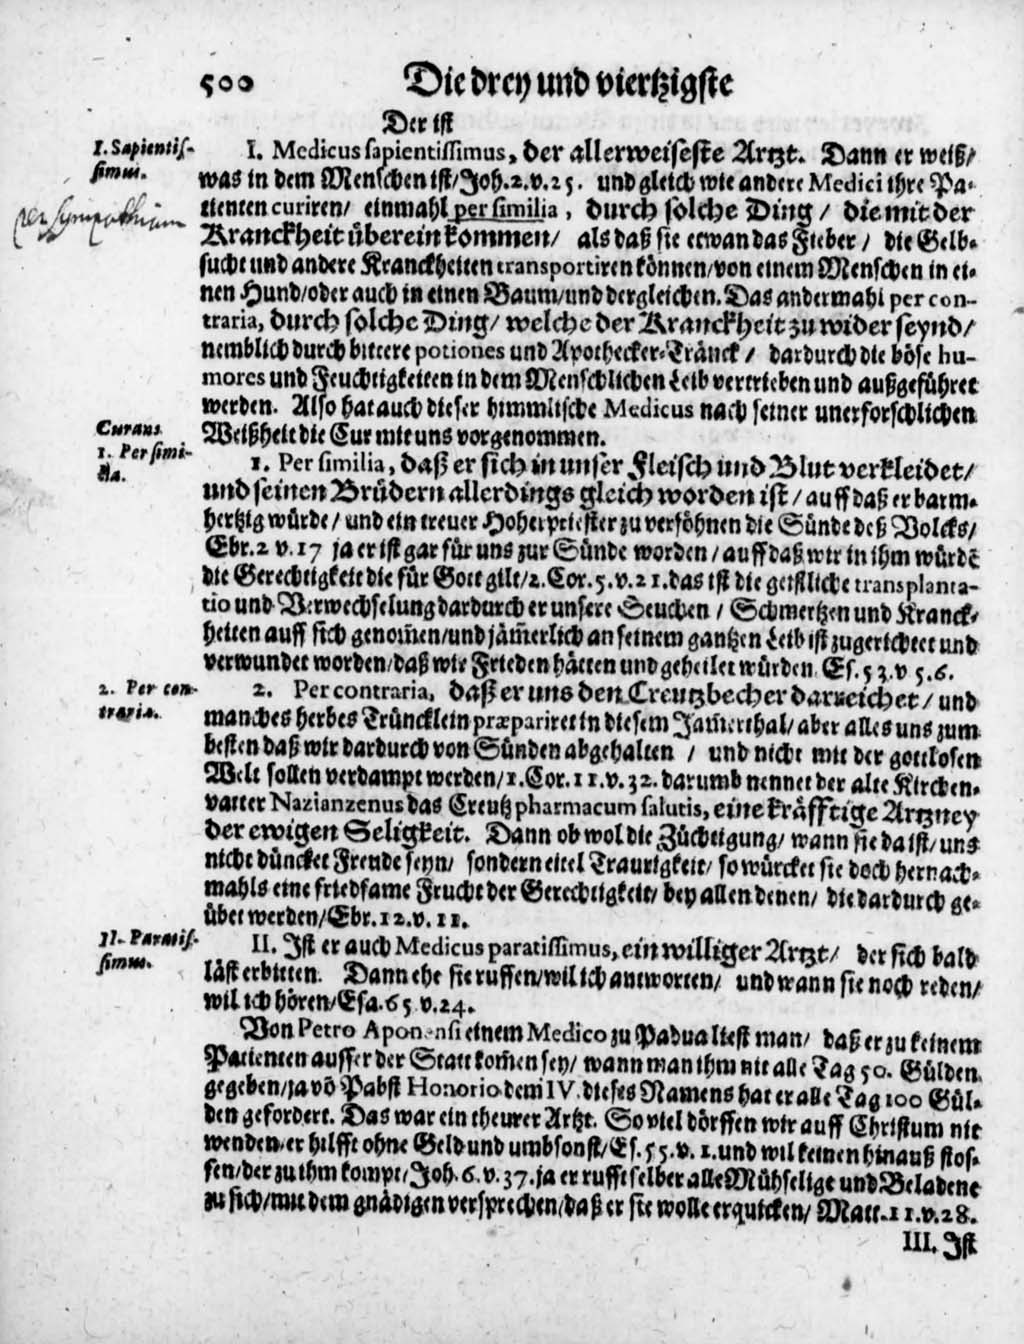 500 Die drey und viertzigste
Der ist
I. Sapientis-
simus.
I. Medicus sapientissimus, der allerweiseste Artzt. Dann er weiß/
was in dem Menschen ist/Joh.2.v.25. und gleich wie andere Medici ihre Pa-
tienten curiren/ einmahl per similia, durch solche Ding / die mit der
per sympathiam
Kranckheit überein kommen/ als daß sie etwan das Fieber / die Gelb-
sucht und andere Kranckheiten transportiren können/von einem Menschen in ei-
nen Hund/oder auch in einen Baum/und dergleichen. Das andermahl per con-
traria, durch solche Ding/ welche der Kranckheit zu wider seynd/
nemblich durch bittere potiones und Apothecker-Tränck / dardurch die böse hu-
mores und Feuchtigkeiten in dem Menschlichen Leib vertrieben und außgeführet
werden. Also hat auch dieser himmlische Medicus nach seiner unerforschlichen
Weißheit die Cur mit uns vorgenommen.
Curans
1. Per simi-
lia.
1. Per similia, daß er sich in unser Fleisch und Blut verkleidet/
und seinen Brüdern allerdings gleich worden ist / auff daß er barm-
hertzig würde / und ein treuer Hoherpriester zu versöhnen die Sünde deß Volcks/
Ebr.2 v.17 ja er ist gar für uns zur Sünde worden / auff daß wir in ihm würdē
die Gerechtigkeit die für Gott gilt/2.Cor.5.v.21.das ist die geistliche transplanta-
tio und Verwechselung dardurch er unsere Seuchen / Schmertzen und Kranck-
heiten auff sich genom̄en/und jäm̄erlich an seinem gantzen Leib ist zugerichtet und
verwundet worden/daß wir Frieden hätten und geheilet würden. Es.53.v 5.6.
2. Per con-
traria.
2. Per contraria, daß er uns den Creutzbecher darreichet / und
manches herbes Trüncklein præpariret in diesem Jam̄erthal/ aber alles uns zum
besten daß wir dardurch von Sünden abgehalten / und nicht mit der gottlosen
Welt sollen verdampt werden/1.Cor.11.v.32. darumb nennet der alte Kirchen-
vatter Nazianzenus das Creutz pharmacum salutis, eine kräfftige Artzney
der ewigen Seligkeit. Dann ob wol die Züchtigung/ wann sie da ist/ uns
nicht düncket Freude seyn/ sondern eitel Traurigkeit/ so würcket sie doch hernach-
mahls eine friedsame Frucht der Gerechtigkeit/ bey allen denen/ die dardurch ge-
übet werden/Ebr.12.v.11.
II. Paratis-
simus.
II. Ist er auch Medicus paratissimus, ein williger Artzt/ der sich bald
läst erbitten. Dann ehe sie ruffen/wil ich antworten/ und wann sie noch reden/
wil ich hören/Esa.65.v.24.
Von Petro Aponensi einem Medico zu Padua liest man/ daß er zu keinem
Patienten ausser der Statt kom̄en sey/ wann man ihm nit alle Tag 50. Gülden
gegeben/ja vō Pabst Honorio dem IV. dieses Namens hat er alle Tag 100 Gül-
den gefordert. Das war ein theurer Artzt. So viel dörffen wir auff Christum nit
wenden/er hilfft ohne Geld und umbsonst/Es.55.v.1.und wil keinen hinauß stos-
sen/der zu ihm kompt/Joh.6.v.37.ja er rufft selber alle Mühselige und Beladene
zu sich/mit dem gnädigen versprechen/daß er sie wolle erquicken/ Matt.11.v.28.
III. Ist